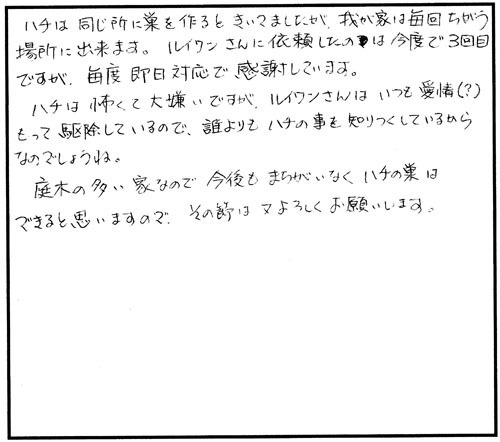 ハチは同じ所に巣を作るときいてましたが、我が家は毎回ちがう
場所に出来ます。ルイワンさんに依頼したのは今度で3回目
ですが、毎度即日対応で感謝しています。
ハチは怖くて大嫌いですが、ルイワンさんはいつも愛情(?)
もって駆除しているので、誰よりもハチの事を知りつくしているから
なのでしょうね。
庭木の多い家なので今後もまちがいなくハチの巣は
できると思いますので、その節は又よろしくお願いします。